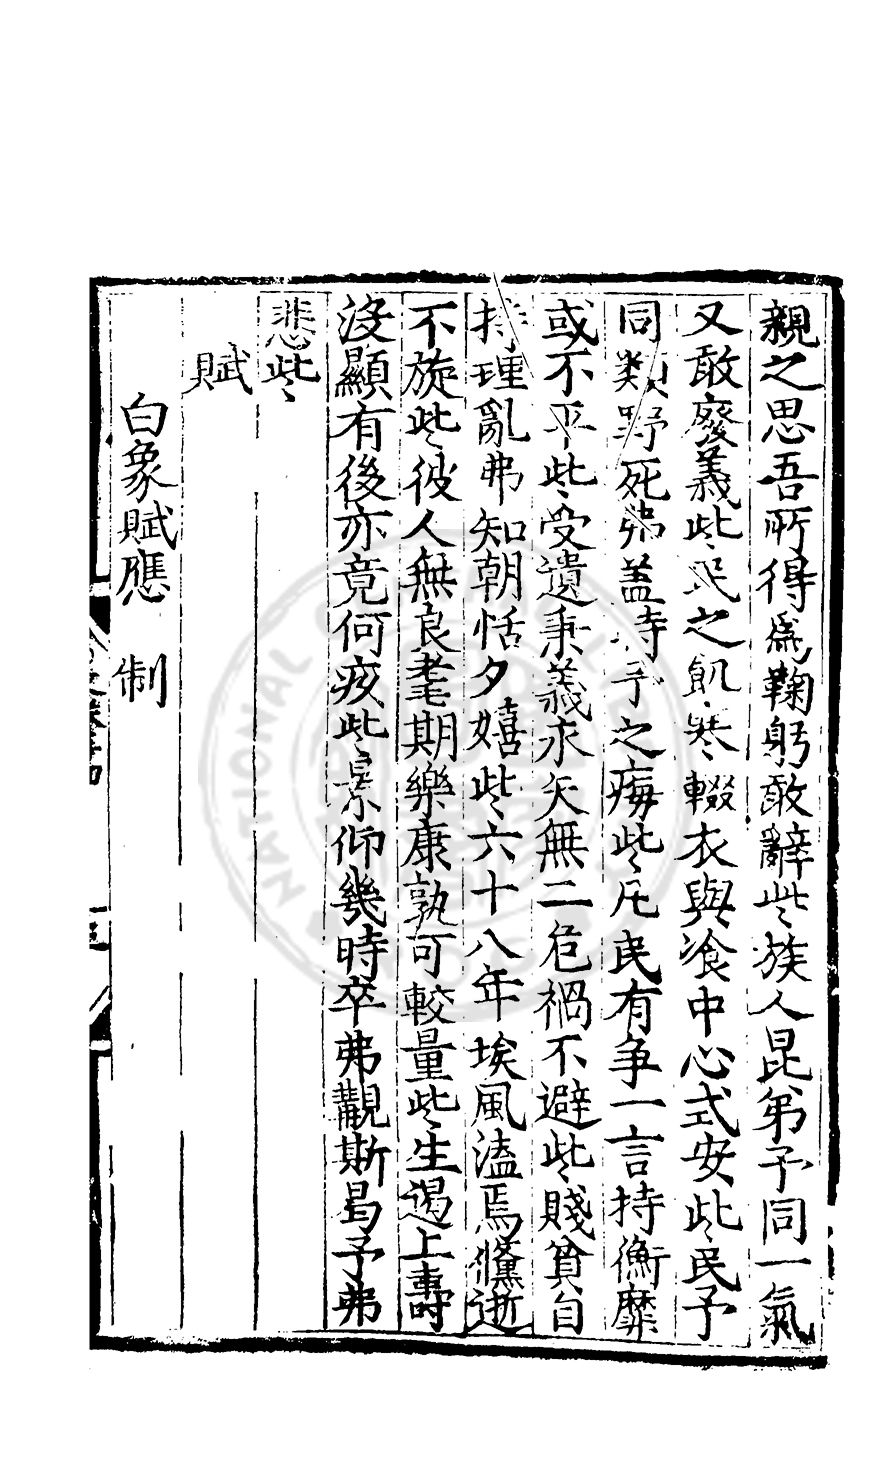 親之思吾所得為鞠躬敢辭些族人昆弟予同一氣
又敢廢義些民之飢寒輟衣與飡中心式安些民予
同類野死弗蓋時予之痗些凡民有爭一言持衡靡
或不平些受遺秉義求矢無二危禍不避些賤貧自
持理亂弗知朝恬夕嬉些六十八年埃風溘焉儵逝
不旋些彼人無良耄期樂康孰可較量些生遏上壽
沒顯有後亦竟何疚些景仰幾時卒弗覯斯曷予弗
悲些
賦
白象賦應 制
NATIONAL CENTRAL